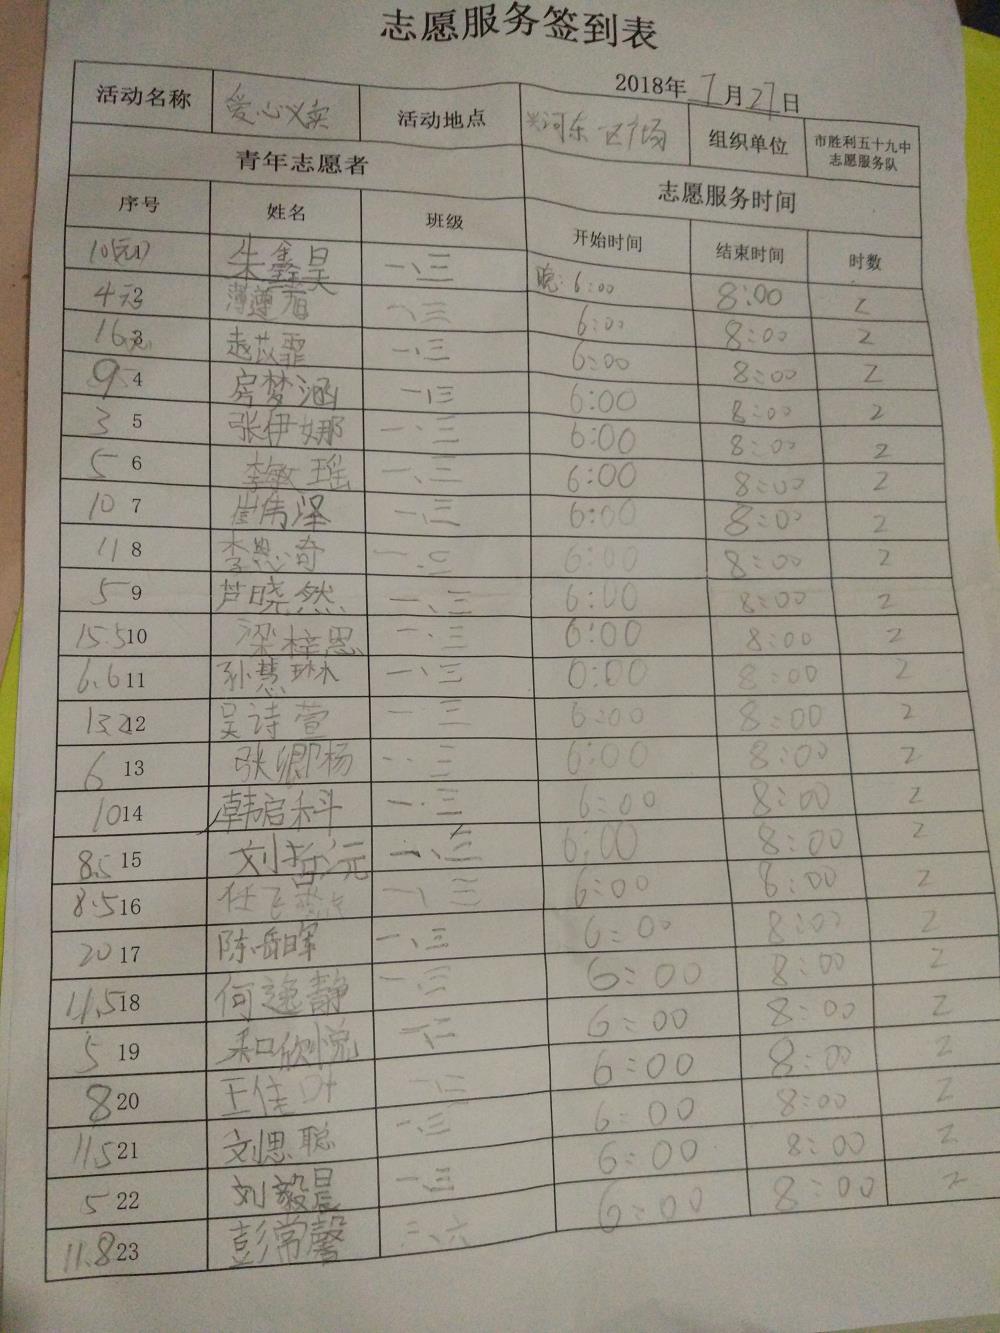 志愿服务签到表
2018年7月27日
活动名称 爱心义卖 活动地点 河东区广场 组织单位 市胜利五十九中志愿服务队
青年志愿者 志愿服务时间
序号 姓名 班级 开始时间 结束时间 时数
10元1 朱鑫昊 一、三 晚:6:00 8:00 2
4元2 一、三 6:00 8:00 2
16元3 赵苡霏 一、三 6:00 8:00 2
9.5 4 房梦涵 一、三 6:00 8:00 2
3 5 张伊娜 一、三 6:00 8:00 2
5 6 李敏瑶 一、三 6:00 8:00 2
10 7 崔伟泽 一、三 6:00 8:00 2
11 8 李思奇 一、三 6:00 8:00 2
5 9 芦晓然 一、三 6:00 8:00 2
15.5 10 梁梓恩 一、三 6:00 8:00 2
6.6 11 孙慧琳 一、三 6:00 8:00 2
12 吴诗萱 一、三 6:00 8:00 2
6 13 张卿杨 一、三 6:00 8:00 2
10 14 韩启科 一、三 6:00 8:00 2
8.5 15 刘哲元 一、三 6:00 8:00 2
8.5 16 任飞 一、三 6:00 8:00 2
20 17 陈岳晖 一、三 6:00 8:00 2
11.5 18 何逸静 一、三 6:00 8:00 2
5 19 和欣悦 6:00 8:00 2
8 20 王佳叶 一、三 6:00 8:00 2
11.5 21 刘思聪 一、三 6:00 8:00 2
5 22 刘毅晨 一、三 6:00 8:00 2
11.8 23 彭常馨 三、六